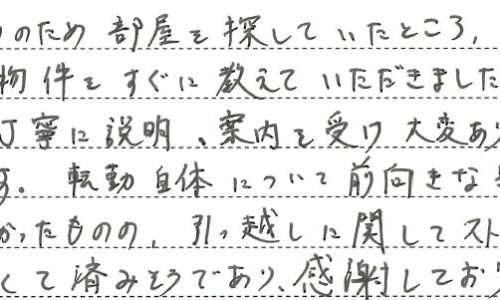 のため 部屋を探していたところ,
物件をすぐに教えていただきました
丁寧に説明、案内を受け大変あ
す。転勤自体について前向きな
かったものの、引っ越しに関してスト
くて済みそうであり、感謝してお